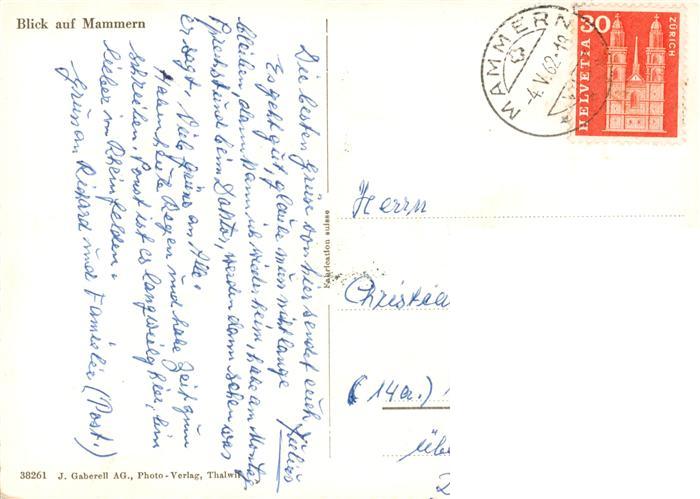 Blick auf Mammern
Die besten Grüße von hier sendet euch Julius
Es geht gut, glaube muss nicht lange
bleiben dann kann ich wieder heim, habe am Montag
Sprechstund beim Doktor, werden dann sehen was
er sagt. Viele Grüße an Alle.
Haben heute Regen und habe Zeit zum
schreiben. Sonst ist es langweilig hier, bin
lieber in Rheinfelden.
Gruss an Richard und Familie (Post.)
38261 J. Gaberell AG., Photo-Verlag, Thalwil
Fabrication suisse
MAMMERN
-4.V.62-19
HELVETIA 30
ZÜRICH
Herrn
Christia
(14a.)